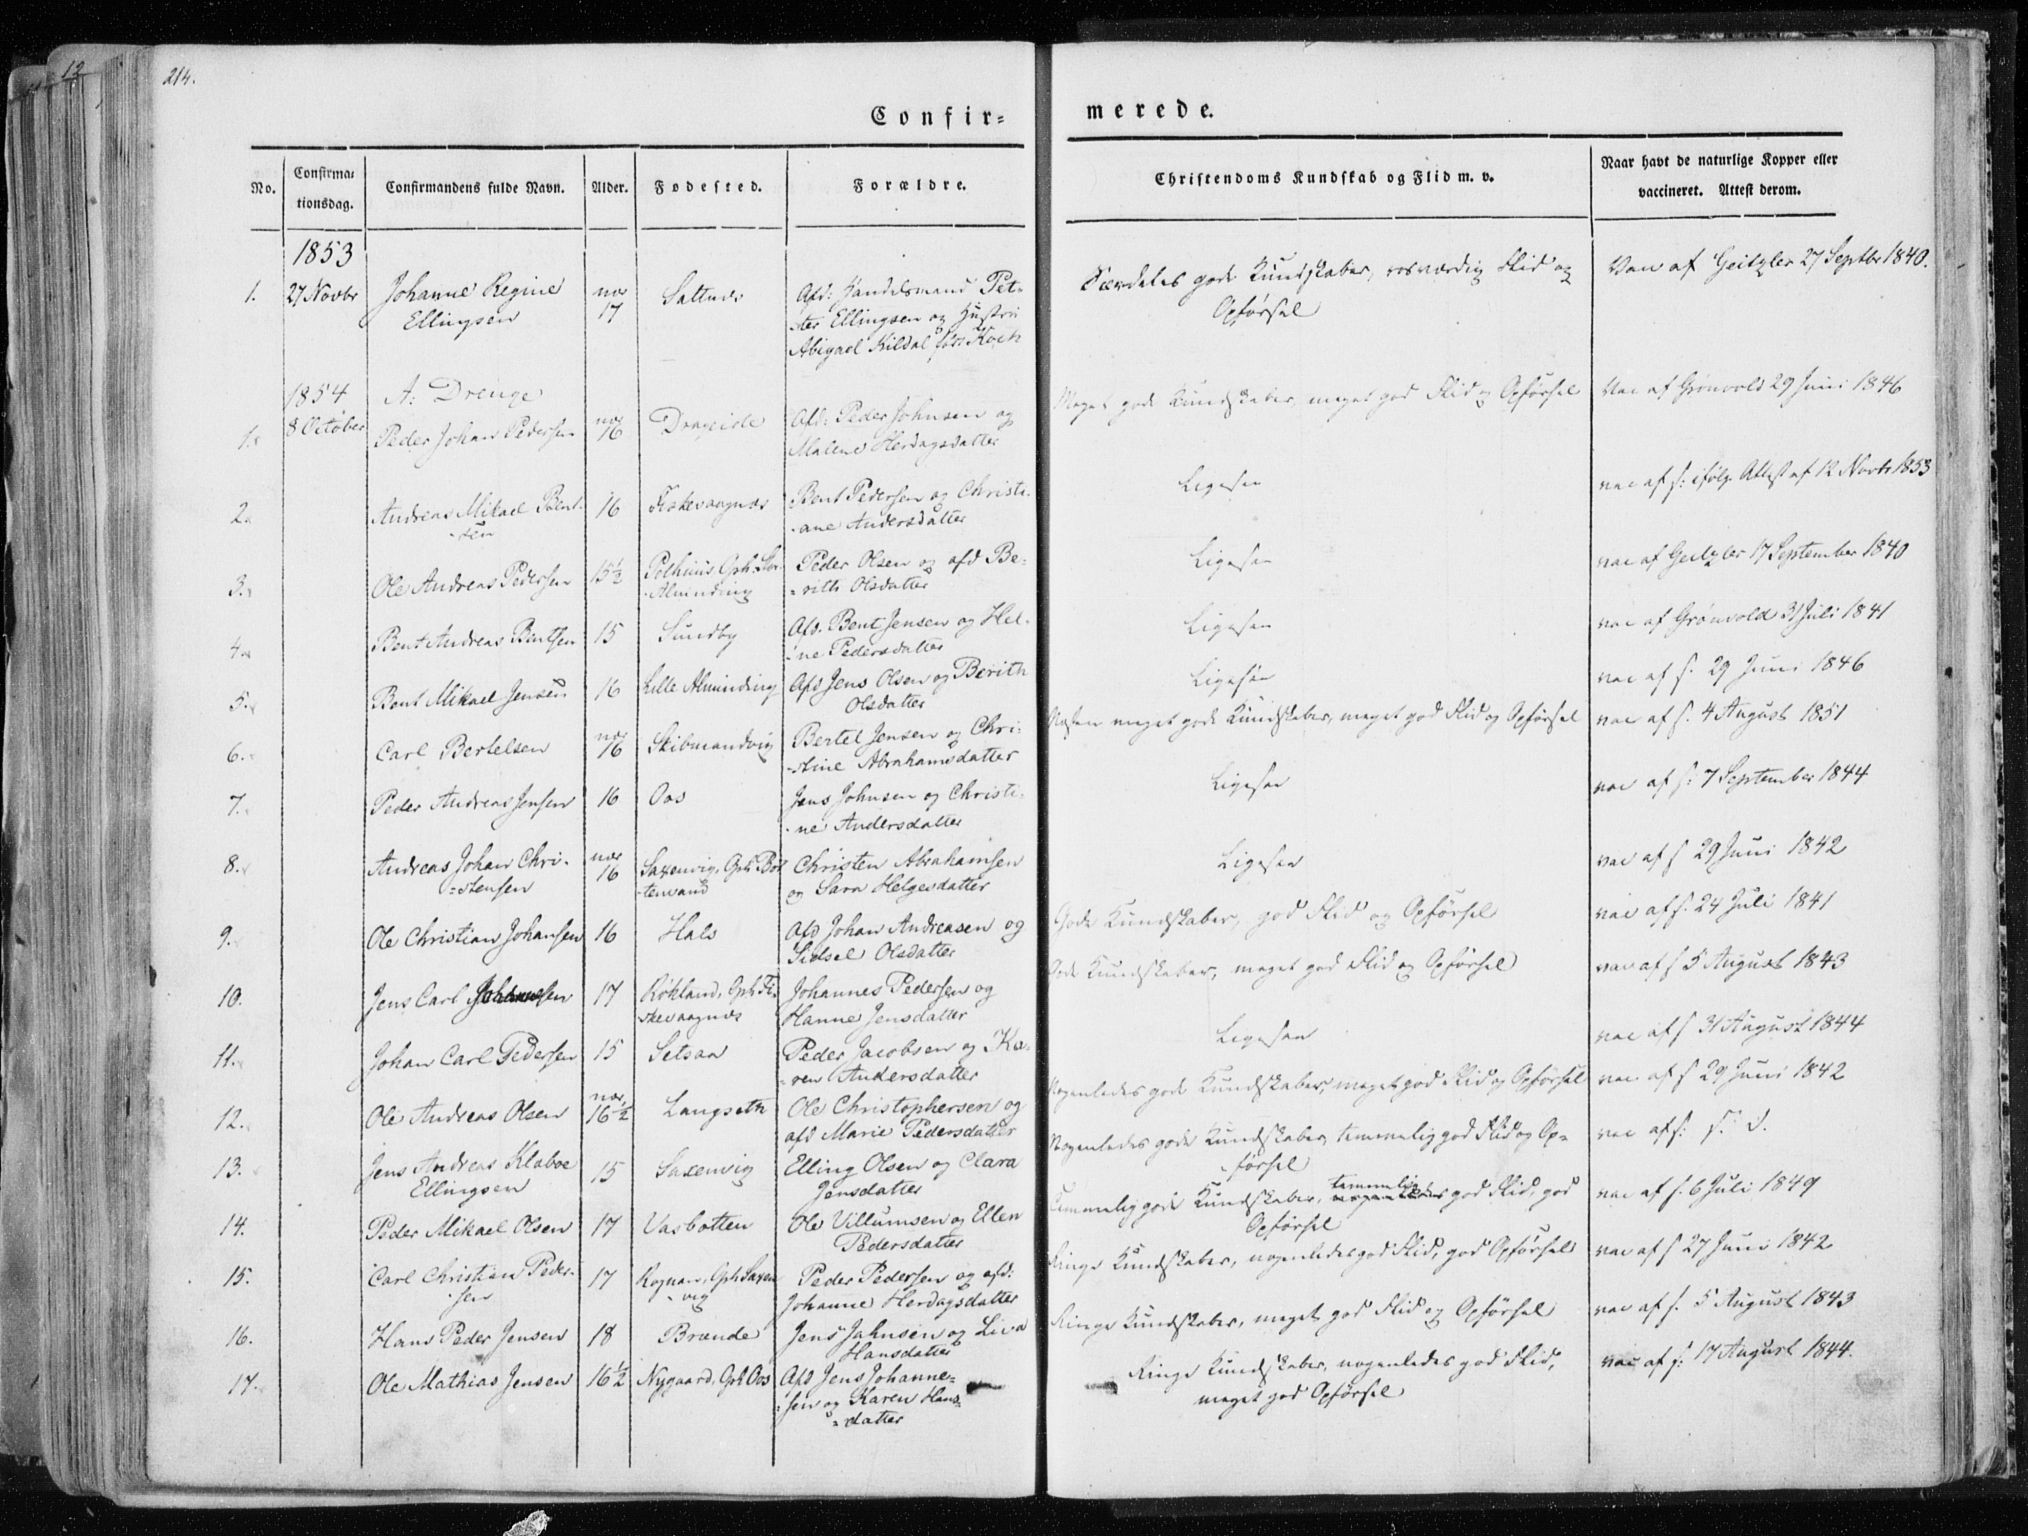 12
214.
Confir-
merede.
No.
Confirma-
tionsdag.
Confirmandens fulde Navn.
Alder.
Fødested.
Forældre.
Christendoms Kundskab og Flid m. v.
Naar havt de naturlige Kopper eller
vaccineret. Attest derom.
1853
1. 27 Novbr Johanne Regine
Ellingsen
nær
17
Saltnes
Afd: Handelsmand Pet-
ter Ellingsen og Hustru
Abigael Kildal født Koch
Særdeles gode Kundskaber, rosværdig Flid og
Opførsel
Vac af Geitzler 27 Septbr 1840.
1854
A: Drenge
1. 8 October Peder Johan Pedersen
nær
16
Drageide
Afd: Peder Johnsen og
Malene Herdagsdatter
Meget gode Kundskaber, meget god Flid og Opførsel
Vac af Grønvold 29 Juni 1846
2. Andreas Mikael Bent-
-sen
16
Fiskevaagnes
Bent Pedersen og Christi-
-ane Andersdatter
Ligesaa
vac af s: ifølge Attest af 12 Novbr 1853
3. Ole Andreas Pedersen
15½
-Alminding
Peder Olsen og afd Be-
-rith Olsdatter
Ligesaa
vac af Geitzler 17 September 1840
4. Bent Andreas Bentsen
15
Sundby
Afd. Bent Jensen og Hel-
-ne Pedersdatter
Ligesaa
vac af Grønvold 31 Juli 1841
5. Bent Mikael Jensen
16
Lille Alminding
Afd Jens Olsen og Berith
Olsdatter
Ligesaa
vac af s. 29 Juni 1846
6. Carl Bertelsen
nær
16
Skibmandvig
Bertel Jensen og Chri-
-stine Abrahamsdatter
Næsten meget gode Kundskaber, meget god Flid og Opførsel
vac af s. 4 August 1851
7. Peder Andreas Jensen
16
Oos
Jens Johnsen og Christi-
-ne Andersdatter
Ligesaa
vac af s: 7 September 1844
8. Andreas Johan Chri-
-stensen
nær
16
Saxenvig, Oph Bot
-tenvand
Christen Abrahamsen
og Sara Helgesdatter
Ligesaa
vac af s 29 Juni 1842
9. Ole Christian Johansen
16
Hals
Afd Johan Andreasen og
Sidsel Olsdatter
Gode Kundskaber, god Flid og Opførsel
vac af s. 24 Juli 1841
10. Jens Carl Johannesen
17
Røkland, Oph Fi-
skevaagnes
Johannes Pedersen og
Hanne Jensdatter
Gode Kundskaber, meget god Flid og Opførsel
vac af s 5 August 1843
11. Johan Carl Pedersen
15
Setsaa
Peder Jacobsen og Ka-
-ren Andersdatter
Ligesaa
vac af s 31 August 1844
12. Ole Andreas Olsen
nær
16½
Langseth
Ole Christophersen og
afd Marie Pedersdatter
Nogenledes gode Kundskaber, meget god Flid og Opførsel
vac af s 29 Juni 1842
13. Jens Andreas Klaboe
Ellingsen
15
Saxenvig
Elling Olsen og Clara
Jensdatter
Nogenledes gode Kundskaber, temmelig god Flid og Op-
-førsel
vac af s: s. D.
14. Peder Mikael Olsen
17
Vasbotten
Ole Villumsen og Ellen
Pedersdatter
Temmelig gode Kundskaber, temmelig nogenledes god Flid, god
Opførsel
vac af s. 6 Juli 1849
15. Carl Christian Peder-
-sen
17
Rognan, Oph Saxen
-vig
Peder Pedersen og afd:
Johanne Herdagsdatter
Ringe Kundskaber, nogenledes god Flid, god Opførsel
vac af s 27 Juni 1842
16. Hans Peder Jensen
18
Brænde
Jens Johnsen og Liva
Hansdatter
Ringe Kundskaber, meget god Flid og Opførsel
vac af s. 5 August 1843
17. Ole Mathias Jensen
16½
Nygaard, Oph Oos
Afd Jens Johanne-
-sen og Karen Hans-
-datter
Ringe Kundskaber, nogenledes god Flid,
meget god Opførsel
vac af s: 17 August 1844.